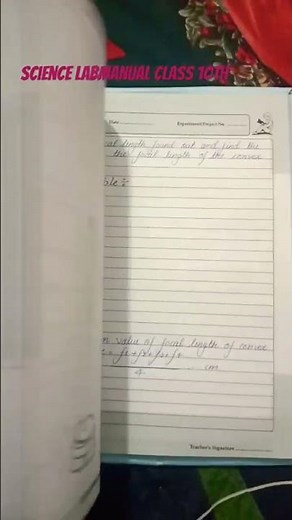 SCIENCE LABMANUAL CLASS 10TH
Date
Experiment/Project No.
length found out and find the
focal length of the convex
value of focal length of convex
4 cm
Teacher's Signature